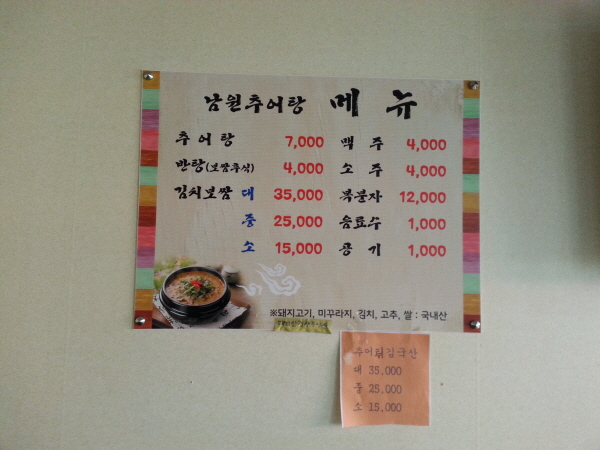 남원추어탕 메 뉴
추 어 탕 7,000 맥 주 4,000
반탕(보쌈후식) 4,000 소 주 4,000
김치보쌈 대 35,000 복분자 12,000
중 25,000 음료수 1,000
소 15,000 공 기 1,000
※돼지고기, 미꾸라지, 김치, 고추, 쌀 : 국내산
추어튀김국산
대 35.000
중 25.000
소 15.000